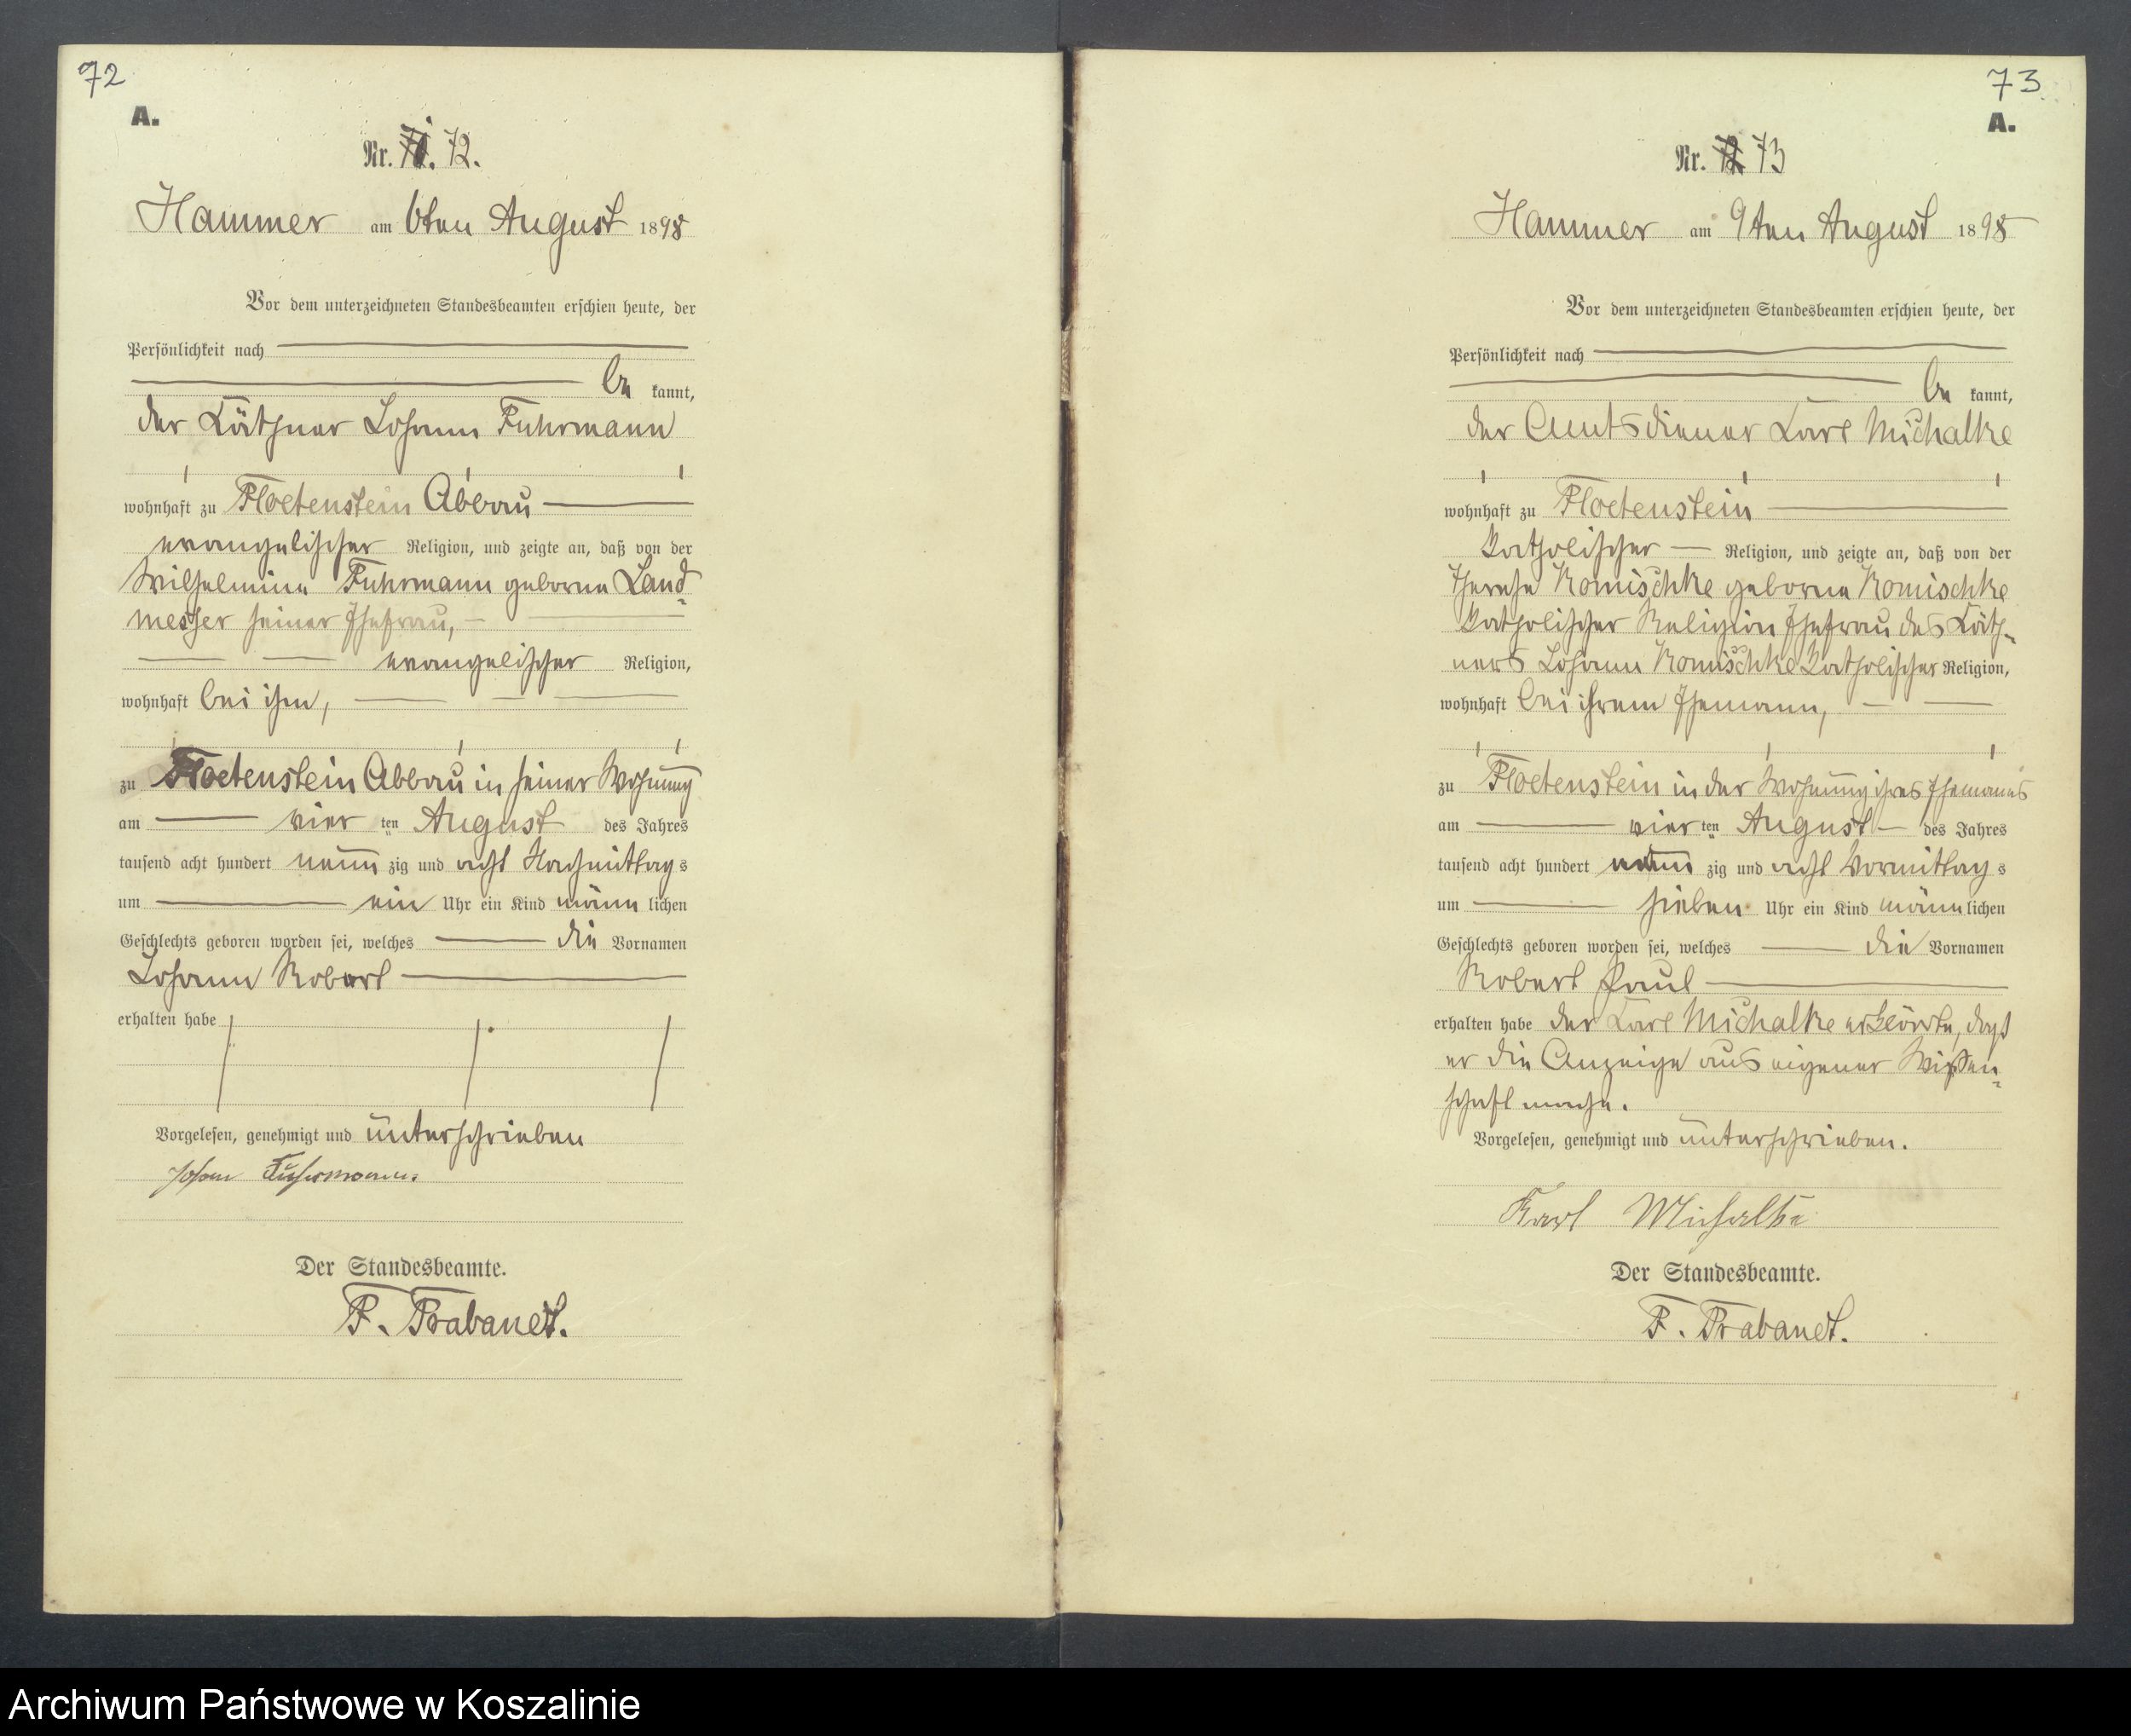 72
A.
Nr. 71. 72.
Hammer am 6ten August 1898
Vor dem unterzeichneten Standesbeamten erschien heute, der
Persönlichkeit nach
be kannt,
der Käthner Johann Fuhrmann
wohnhaft zu Floetenstein Abbau
evangelischer Religion, und zeigte an, daß von der
Wilhelmine Fuhrmann geborne Land-
messer seiner Ehefrau,
evangelischer Religion,
wohnhaft bei ihm,
zu Floetenstein Abbau in seiner Wohnung
am vier ten August des Jahres
tausend acht hundert neun zig und acht Nachmittag s
um ein Uhr ein Kind männ lichen
Geschlechts geboren worden sei, welches die Vornamen
Johann Robert
erhalten habe
Vorgelesen, genehmigt und unterschrieben
Johann Fuhrmann.
Der Standesbeamte.
F. Prabanet.
73
A.
Nr. 72 73
Hammer am 9ten August 1898
Vor dem unterzeichneten Standesbeamten erschien heute, der
Persönlichkeit nach
be kannt,
der Amtsdiener Karl Michalke
wohnhaft zu Floetenstein
katholischer Religion, und zeigte an, daß von der
Therese Romischke geborne Romischke
katholischer Religion Ehefrau des Käth-
ners Johann Romischke katholischer Religion,
wohnhaft bei ihrem Ehemann,
zu Floetenstein in der Wohnung ihres Ehemanns
am vier ten August des Jahres
tausend acht hundert neun zig und acht Vormittag s
um sieben Uhr ein Kind männ lichen
Geschlechts geboren worden sei, welches die Vornamen
Robert Paul
erhalten habe der Karl Michalke erklärte, daß
er die Anzeige aus eigener Wissen-
schaft mache.
Vorgelesen, genehmigt und unterschrieben.
Karl Michalke
Der Standesbeamte.
F. Prabanet.
Archiwum Państwowe w Koszalinie